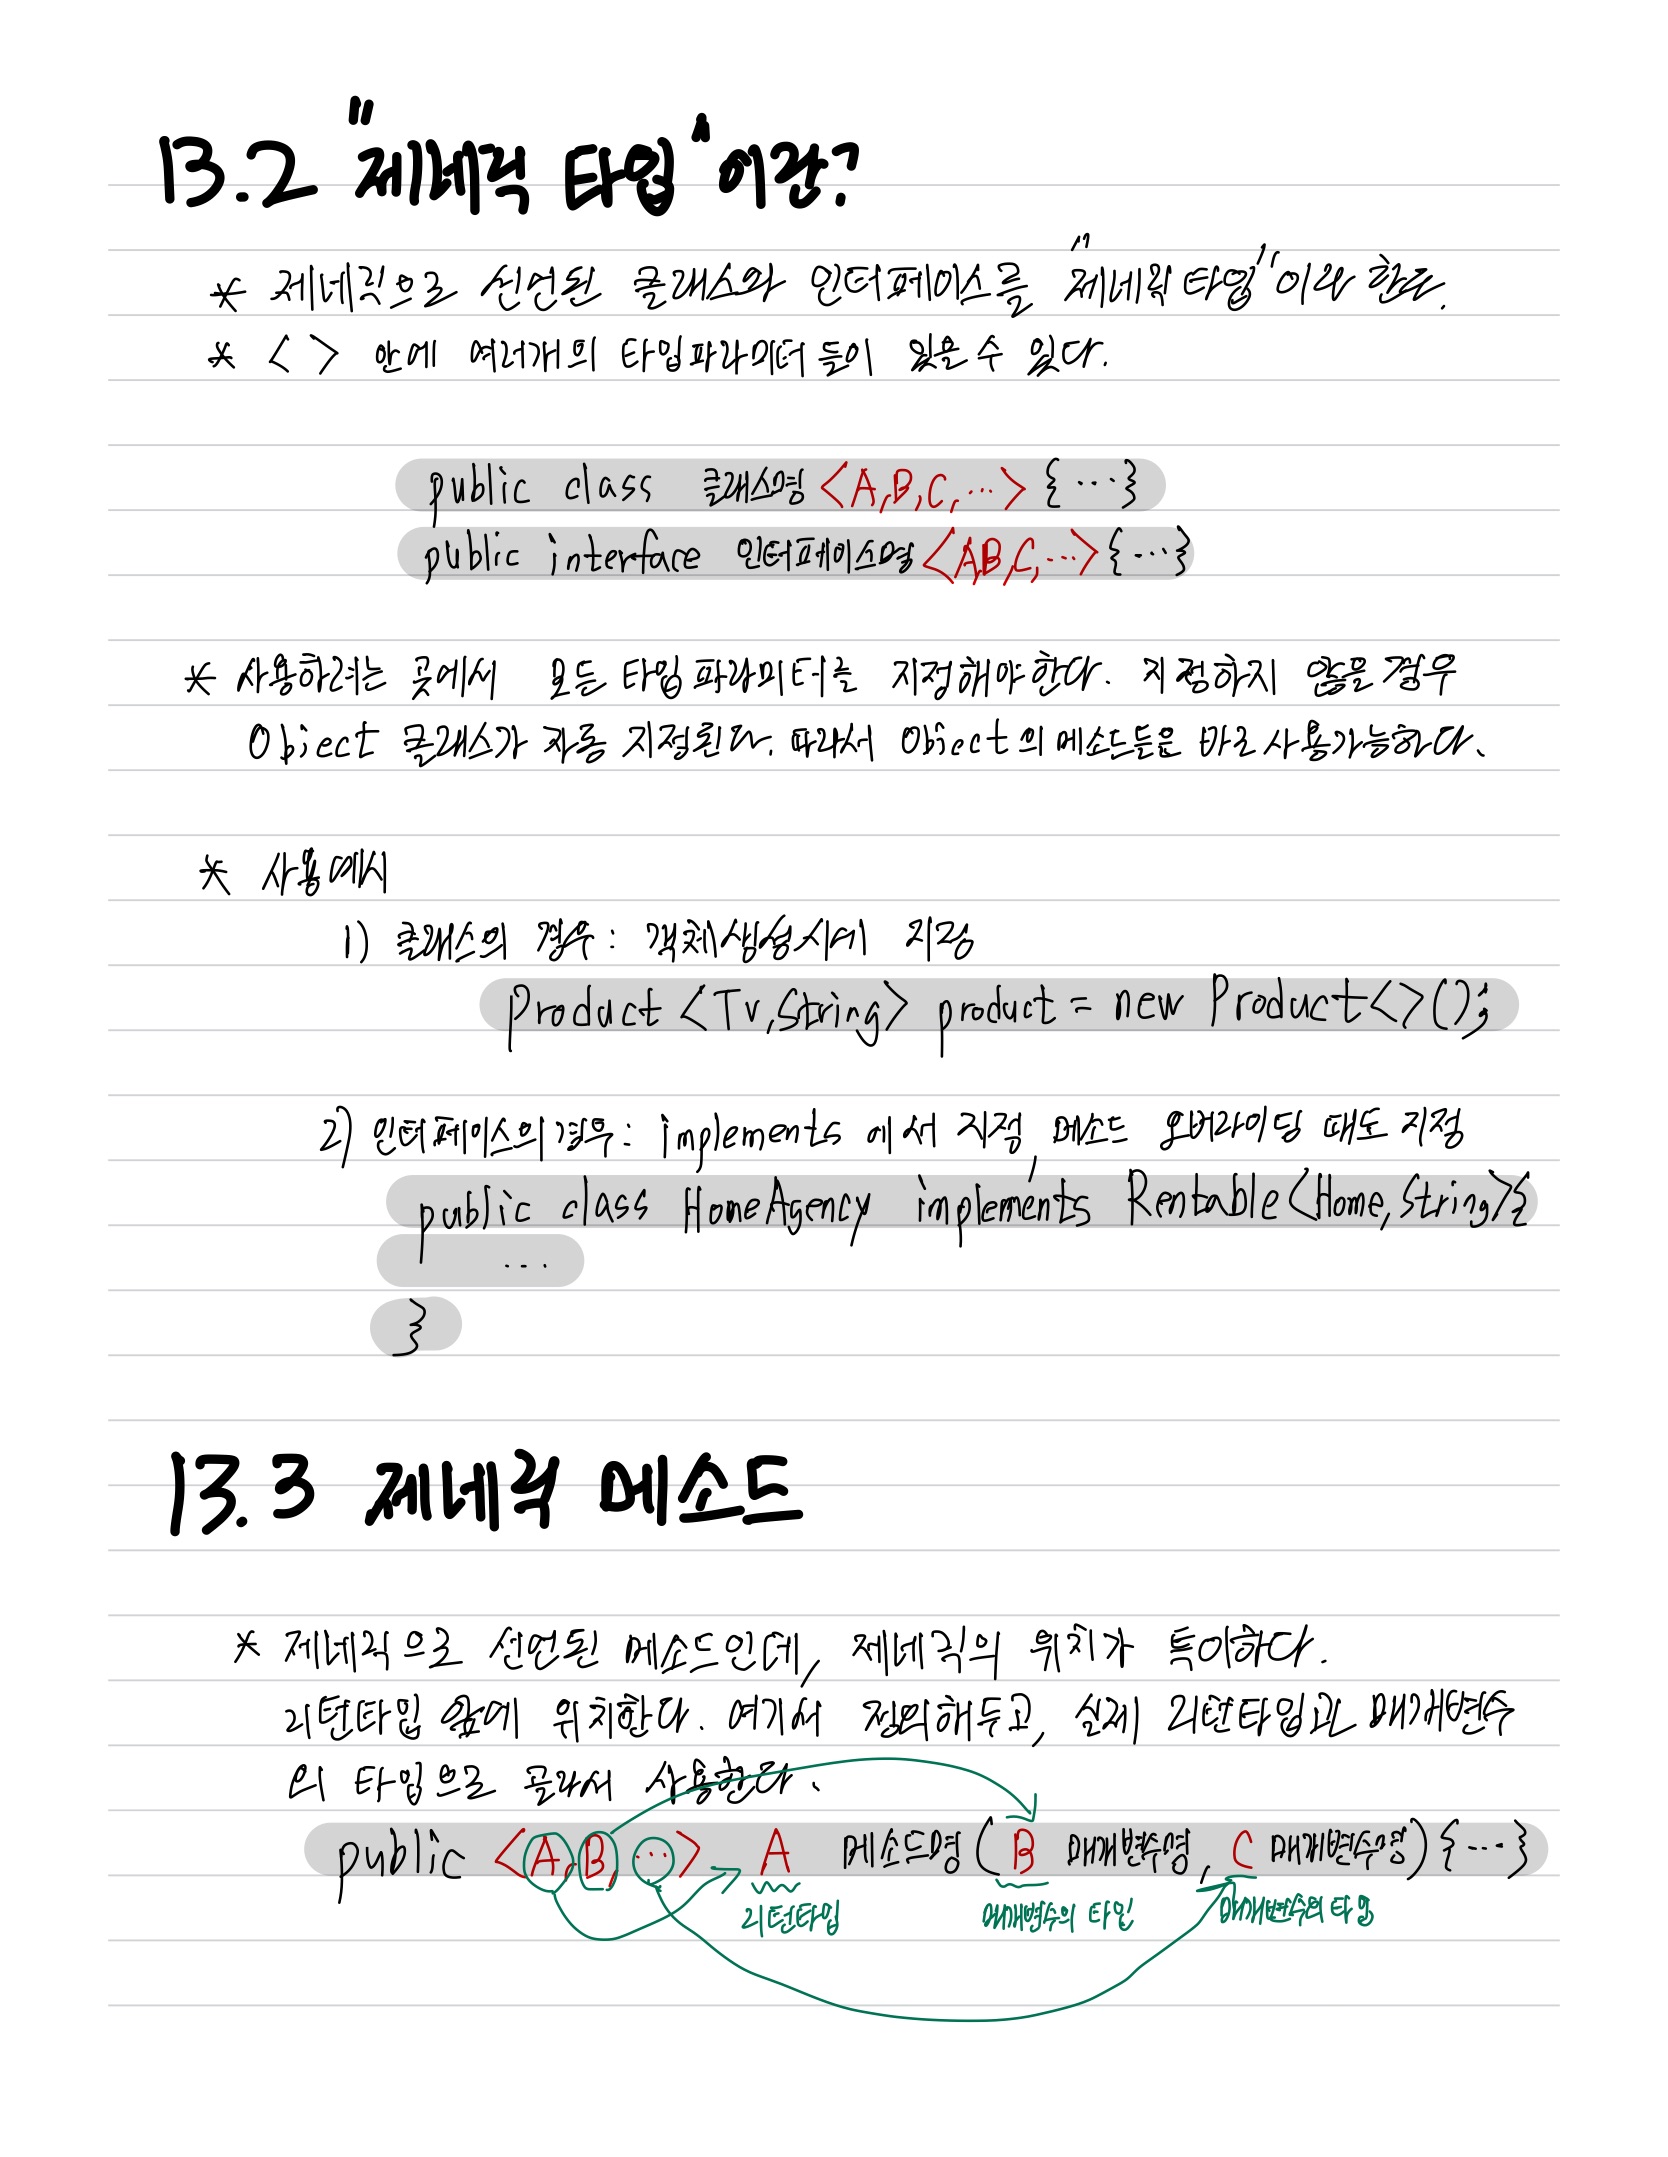 13.2 "제네릭 타입"이란?
* 제네릭으로 선언된 클래스와 인터페이스를 "제네릭 타입"이라 한다.
* < > 안에 여러개의 타입파라미터들이 있을 수 있다.
public class 클래스명 <A,B,C,…> {…}
public interface 인터페이스명 <A,B,C,…> {…}
* 사용하려는 곳에서 모든 타입 파라미터를 지정해야한다. 지정하지 않을경우
Object 클래스가 자동 지정된다. 따라서 Object의 메소드들은 바로 사용가능하다.
* 사용예시
1) 클래스의 경우: 객체생성시에 지정
Product <Tv,String> product = new Product<>();
2) 인터페이스의 경우: implements 에서 지정, 메소드 오버라이딩 때도 지정
public class HomeAgency implements Rentable<Home,String>{
…
}
13.3 제네릭 메소드
* 제네릭으로 선언된 메소드인데, 제네릭의 위치가 특이하다.
리턴타입 앞에 위치한다. 여기서 정의해두고, 실제 리턴타입과 매개변수
의 타입으로 골라서 사용한다.
public <A,B,…> A 메소드명 (B 매개변수명, C 매개변수명) {…}
리턴타입 매개변수의 타입 매개변수의 타입